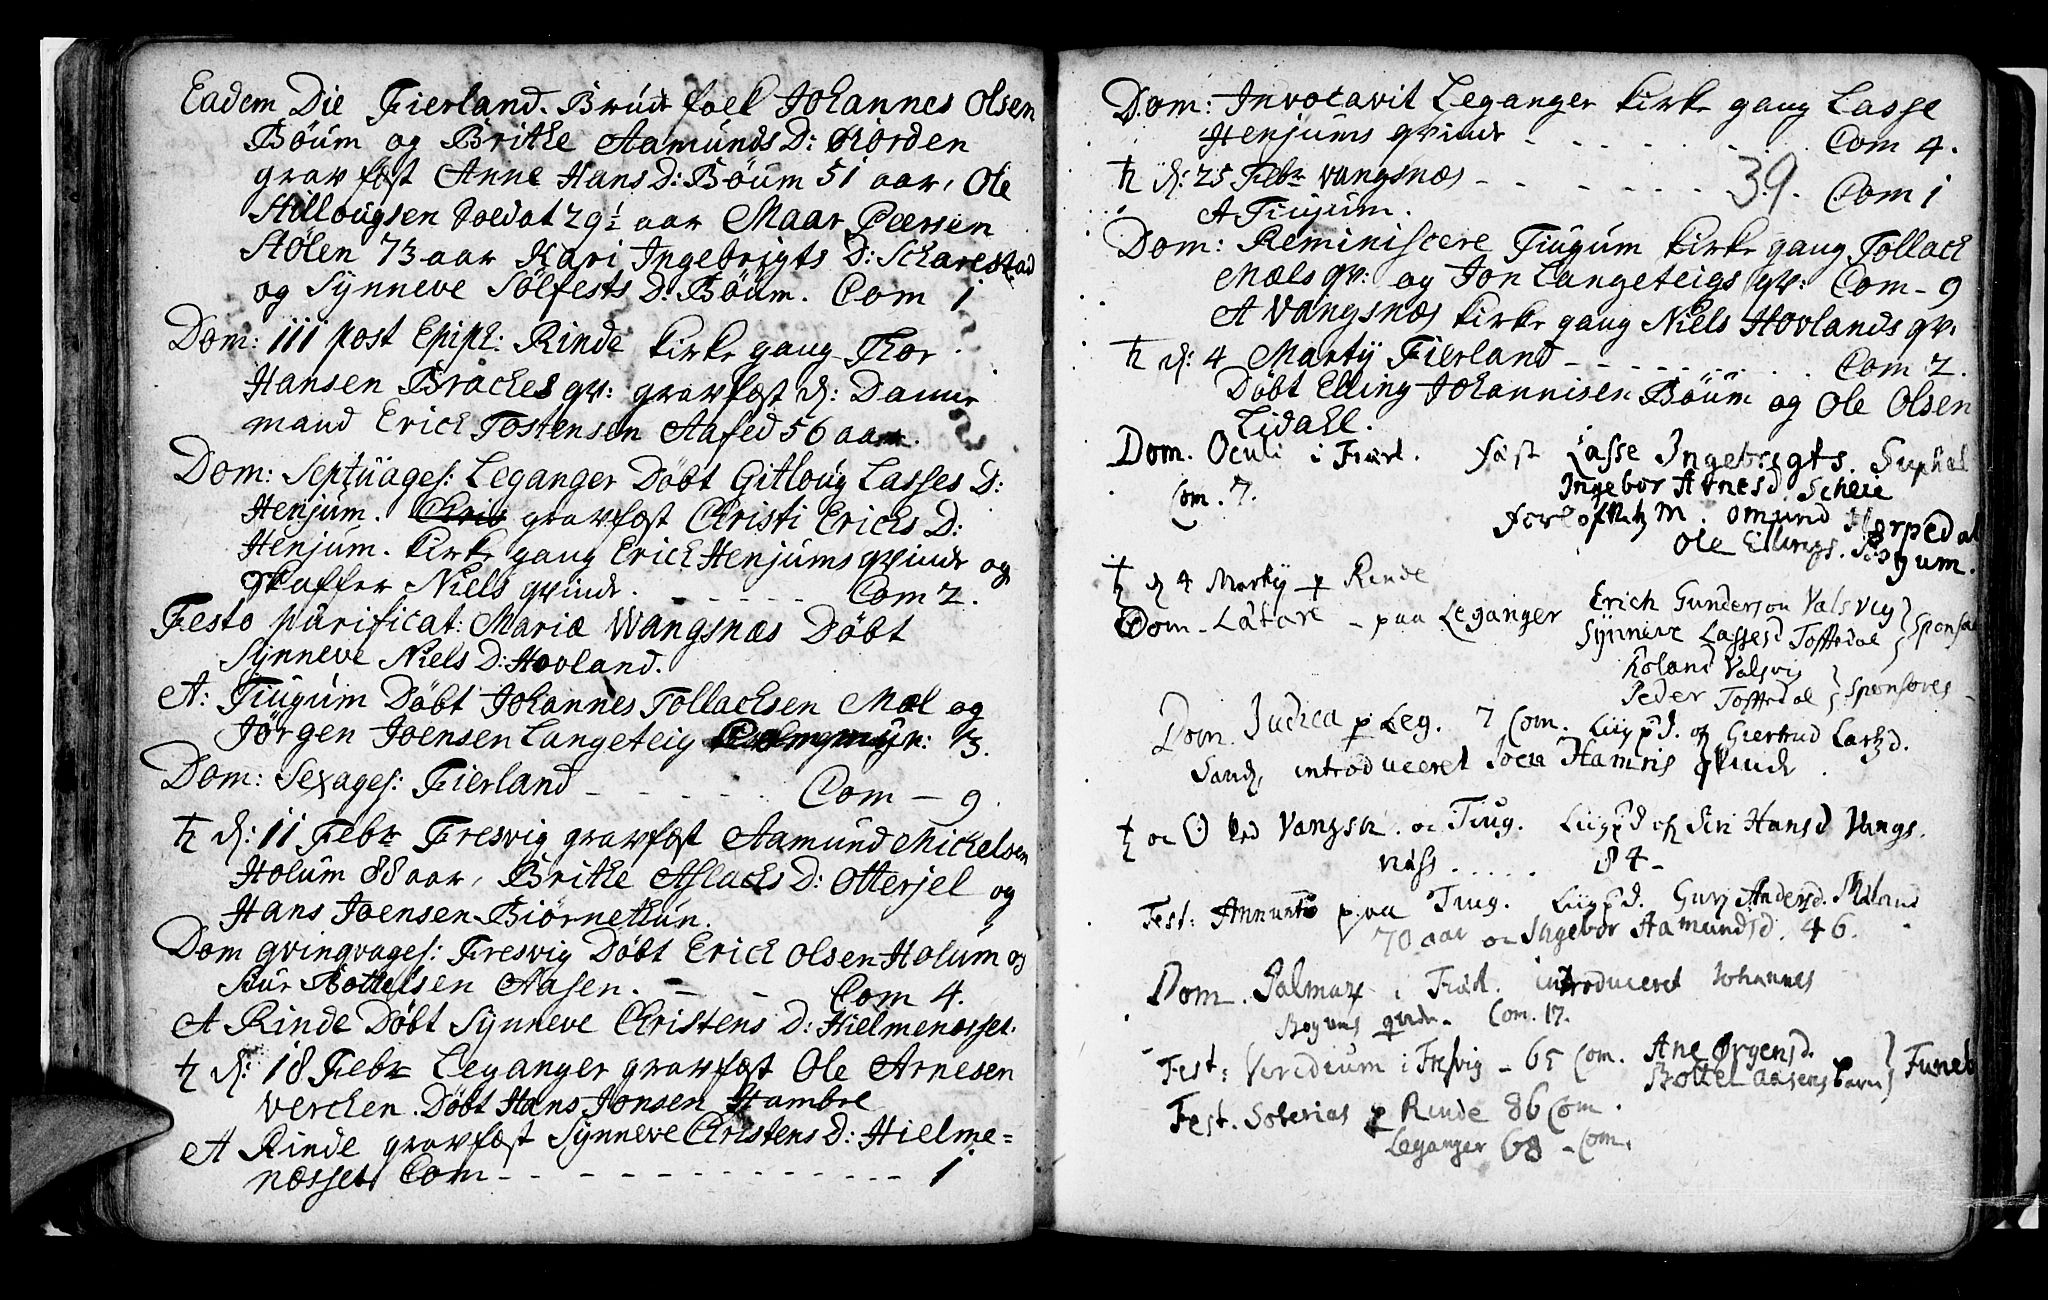 Eadem Die Fierland. Brud foel Johannes Olsen
Böüm og Brithe Aamunds D: Horden
gravfæst Anne Hans D: Böüm 51 aar, Ole
Soldat 29½ aar Maar Peersen
Stölen 73 aar Kari Ingebrigts D: Scharestad
og Synneve Sölfests D: Böüm. Com 1
Dom: III post Epiph: Rinde kirke gang Thor
Hansen Brackes qv: gravfæst d: Danne
mand Erick Tostensen Aafed 56 aar.
Dom: Septüages: Leganger Döbt Gitloug Lasses D:
Henjum. gravfæst Christi Ericks D:
Henjum. kirke gang Erick Henjums qvinde og
Skaffer Niels qvinde. - - - - - Com 2.
Festo purificat: Mariæ Wangsnæs Döbt
Synneve Niels D: Hovland.
A: Tiugum Döbt Johannes Tollachsen Mæl og
Jörgen Joensen Langeteig
Dom: Sexages: Fierland - - - - - Com - 9.
♄ d: 11 Febr Fresvig gravfæst Aamund Mickelsen
Holum 88 aar, Brithe Aslacks D: Otterjel og
Hans Joensen Biörnethun.
Dom qvinqvages: Fresvig Döbt Erick Olsen Holum og
Siur Bottelsen Aasen. - - Com 4.
A Rinde Döbt Synneve Christens D: Hielmenæsset.
♄ d: 18 Febr Leganger gravfæst Ole Arnesen
verchen. Döbt Hans Jonsen Hambre
A Rinde gravfæst Synneve Christens D: Hielme=
næsset Com - - - - - - - - - 1
Dom: Invocavit Leganger kirke gang Lasse
Henjums qvinde - - - - - - Com 4.
♄ d: 25 Febr Vangsnæs - - - - - - Com 1
39.
A Tiugum.
Dom: Reminiscere Tiugum kirke gang Tollack
Mæls qv: og Jon Langeteigs qv: Com - 9
A Vangsnæs kirke gang Niels Hovlands qv.
♄ d: 4 Marty Fierland - - - - - - Com 2.
Döbt Elling Johannisen Böüm og Ole Olsen
Lidahl.
Dom. Oculi i Fiærl. fæst Lasse Ingebrigts. Suphæl
Com. 7. Ingebor Arnesd Scheie
M. Omund Horpedal
Ole Ellings.
♄ d 4 Marty p Rinde
Dom. Lætare - paa Leganger Erich Gunderson Valsvig
Synneve Lassesd Tofftedal } Sponsal
Roland Valsvig
Peder Tofftedal } Sponsores
Dom. Judica p Leg. 7 Com. Liigpd. of Giertrud Larsd.
Sand, introduceret Joen Hamris qvinde.
♄ oc ☉ ved Vangsn. oc Tiug. Liigpd of Siri Hansd Vangs.
næss . . . . . 84 -
Fest: Annunt paa Tiug. Liigpd. Gury Andersd. Mæland
70 aar oc Ingebor Aamundsd. 46.
Dom. Palmar i Fiærl. introduceret Johannes
Bøyums qvinde. Com. 17.
Fest: Viridium i Fresvig - 65 Com. Ane Ørgensd.
Bottel Aasens barn } Funeb
Fest. Soterias p Rinde 86 Com.
Leganger 68 - Com.